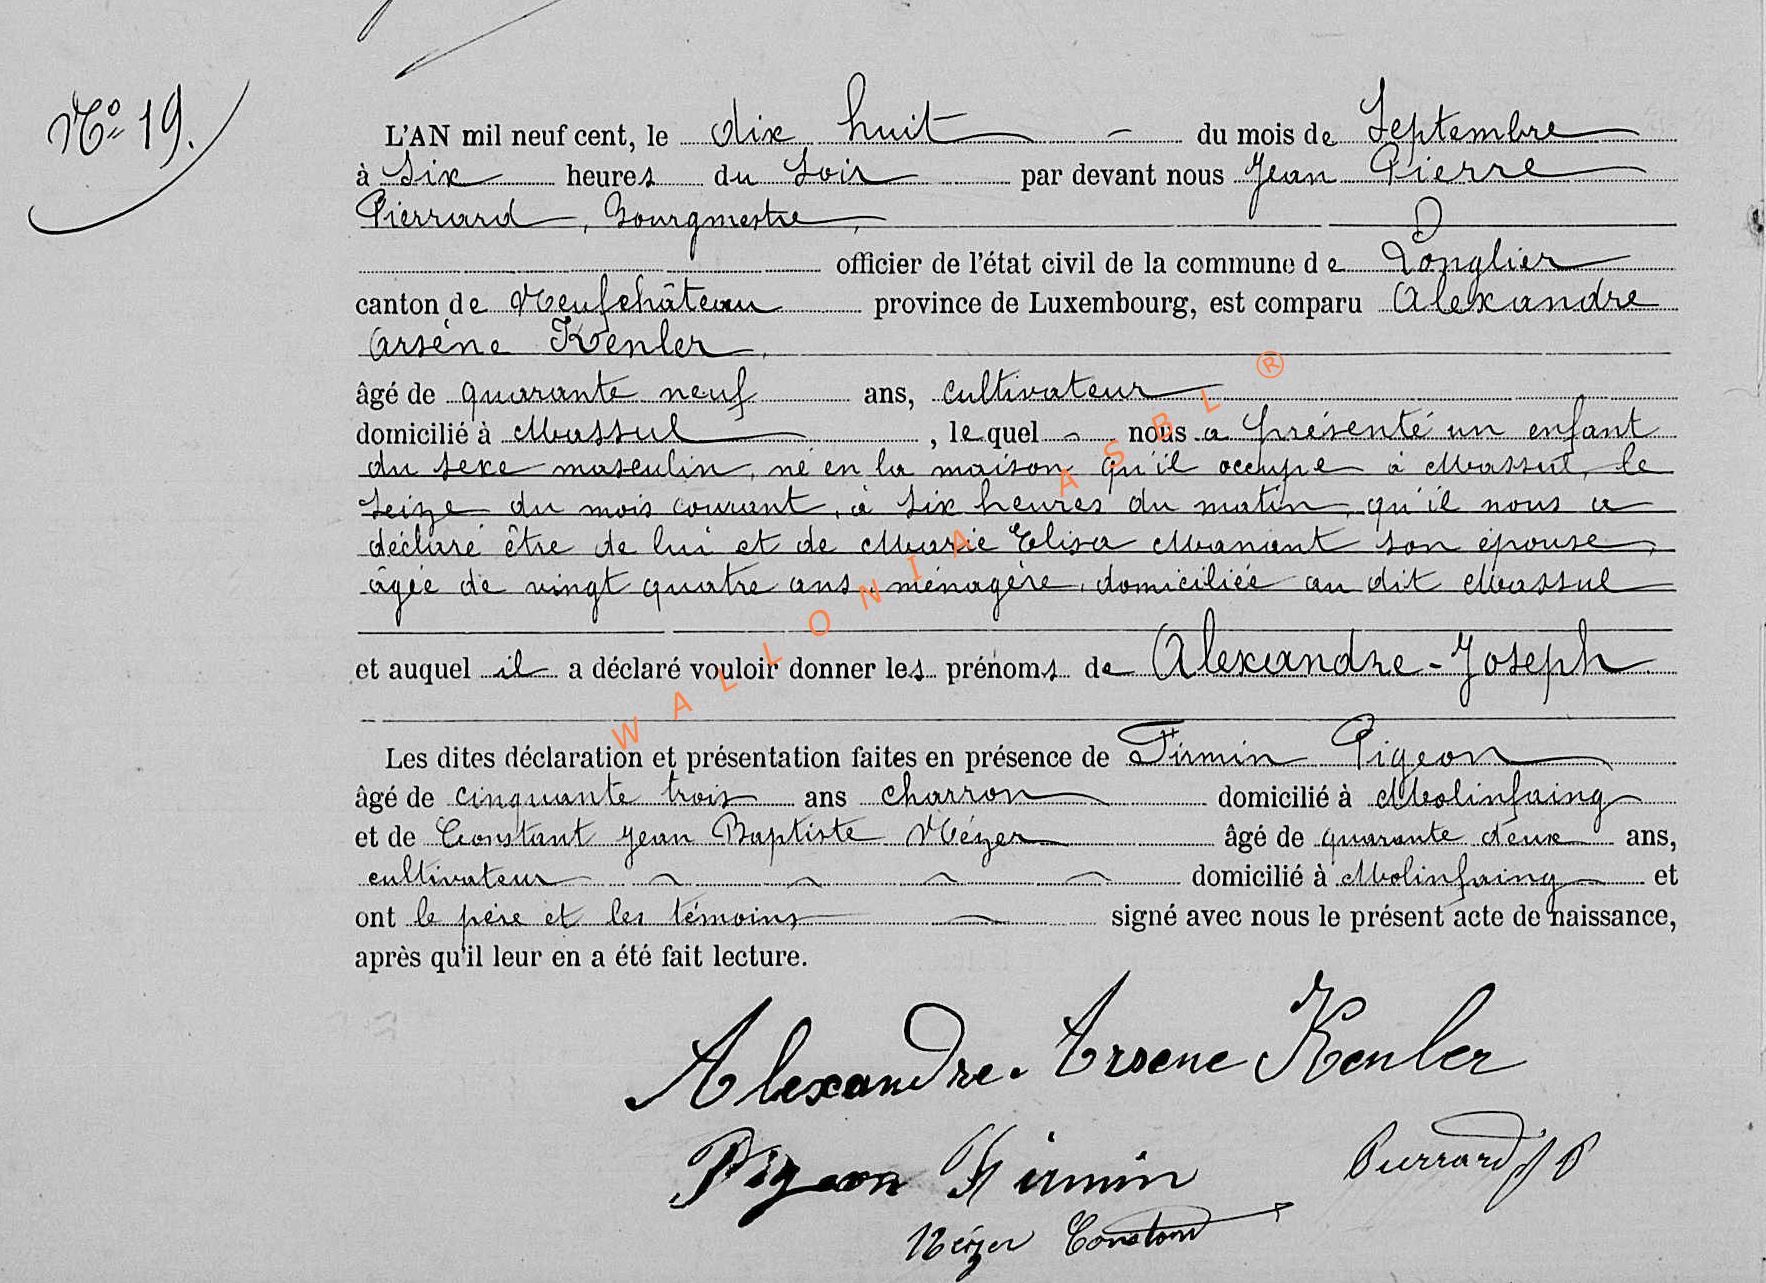 N° 19.
L'AN mil neuf cent, le dix huit du mois de Septembre
à six heures du soir par devant nous Jean Pierre
Pierrard, Bourgmestre,
officier de l'état civil de la commune de Longlier
canton de Neufchâteau province de Luxembourg, est comparu Alexandre
Arsène Kenler,
âgé de quarante neuf ans, cultivateur
domicilié à Massul, lequel nous a présenté un enfant
du sexe masculin, né en la maison qu'il occupe à Massul, le
seize du mois courant, à six heures du matin, qu'il nous a
déclaré être de lui et de Marie Elisa Manant son épouse,
âgée de vingt quatre ans, ménagère, domiciliée au dit Massul
et auquel il a déclaré vouloir donner les prénoms de Alexandre-Joseph
Les dites déclaration et présentation faites en présence de Firmin Pigeon
âgé de cinquante trois ans charron domicilié à Molinfaing
et de Constant Jean Baptiste Nézer âgé de quarante deux ans,
cultivateur domicilié à Molinfaing et
ont le père et les témoins signé avec nous le présent acte de naissance,
après qu'il leur en a été fait lecture.
Alexandre. Arsene Kenler
Pigeon Firmin Pierrard J P
Nézer Constant
WALLONIA ASBL ®